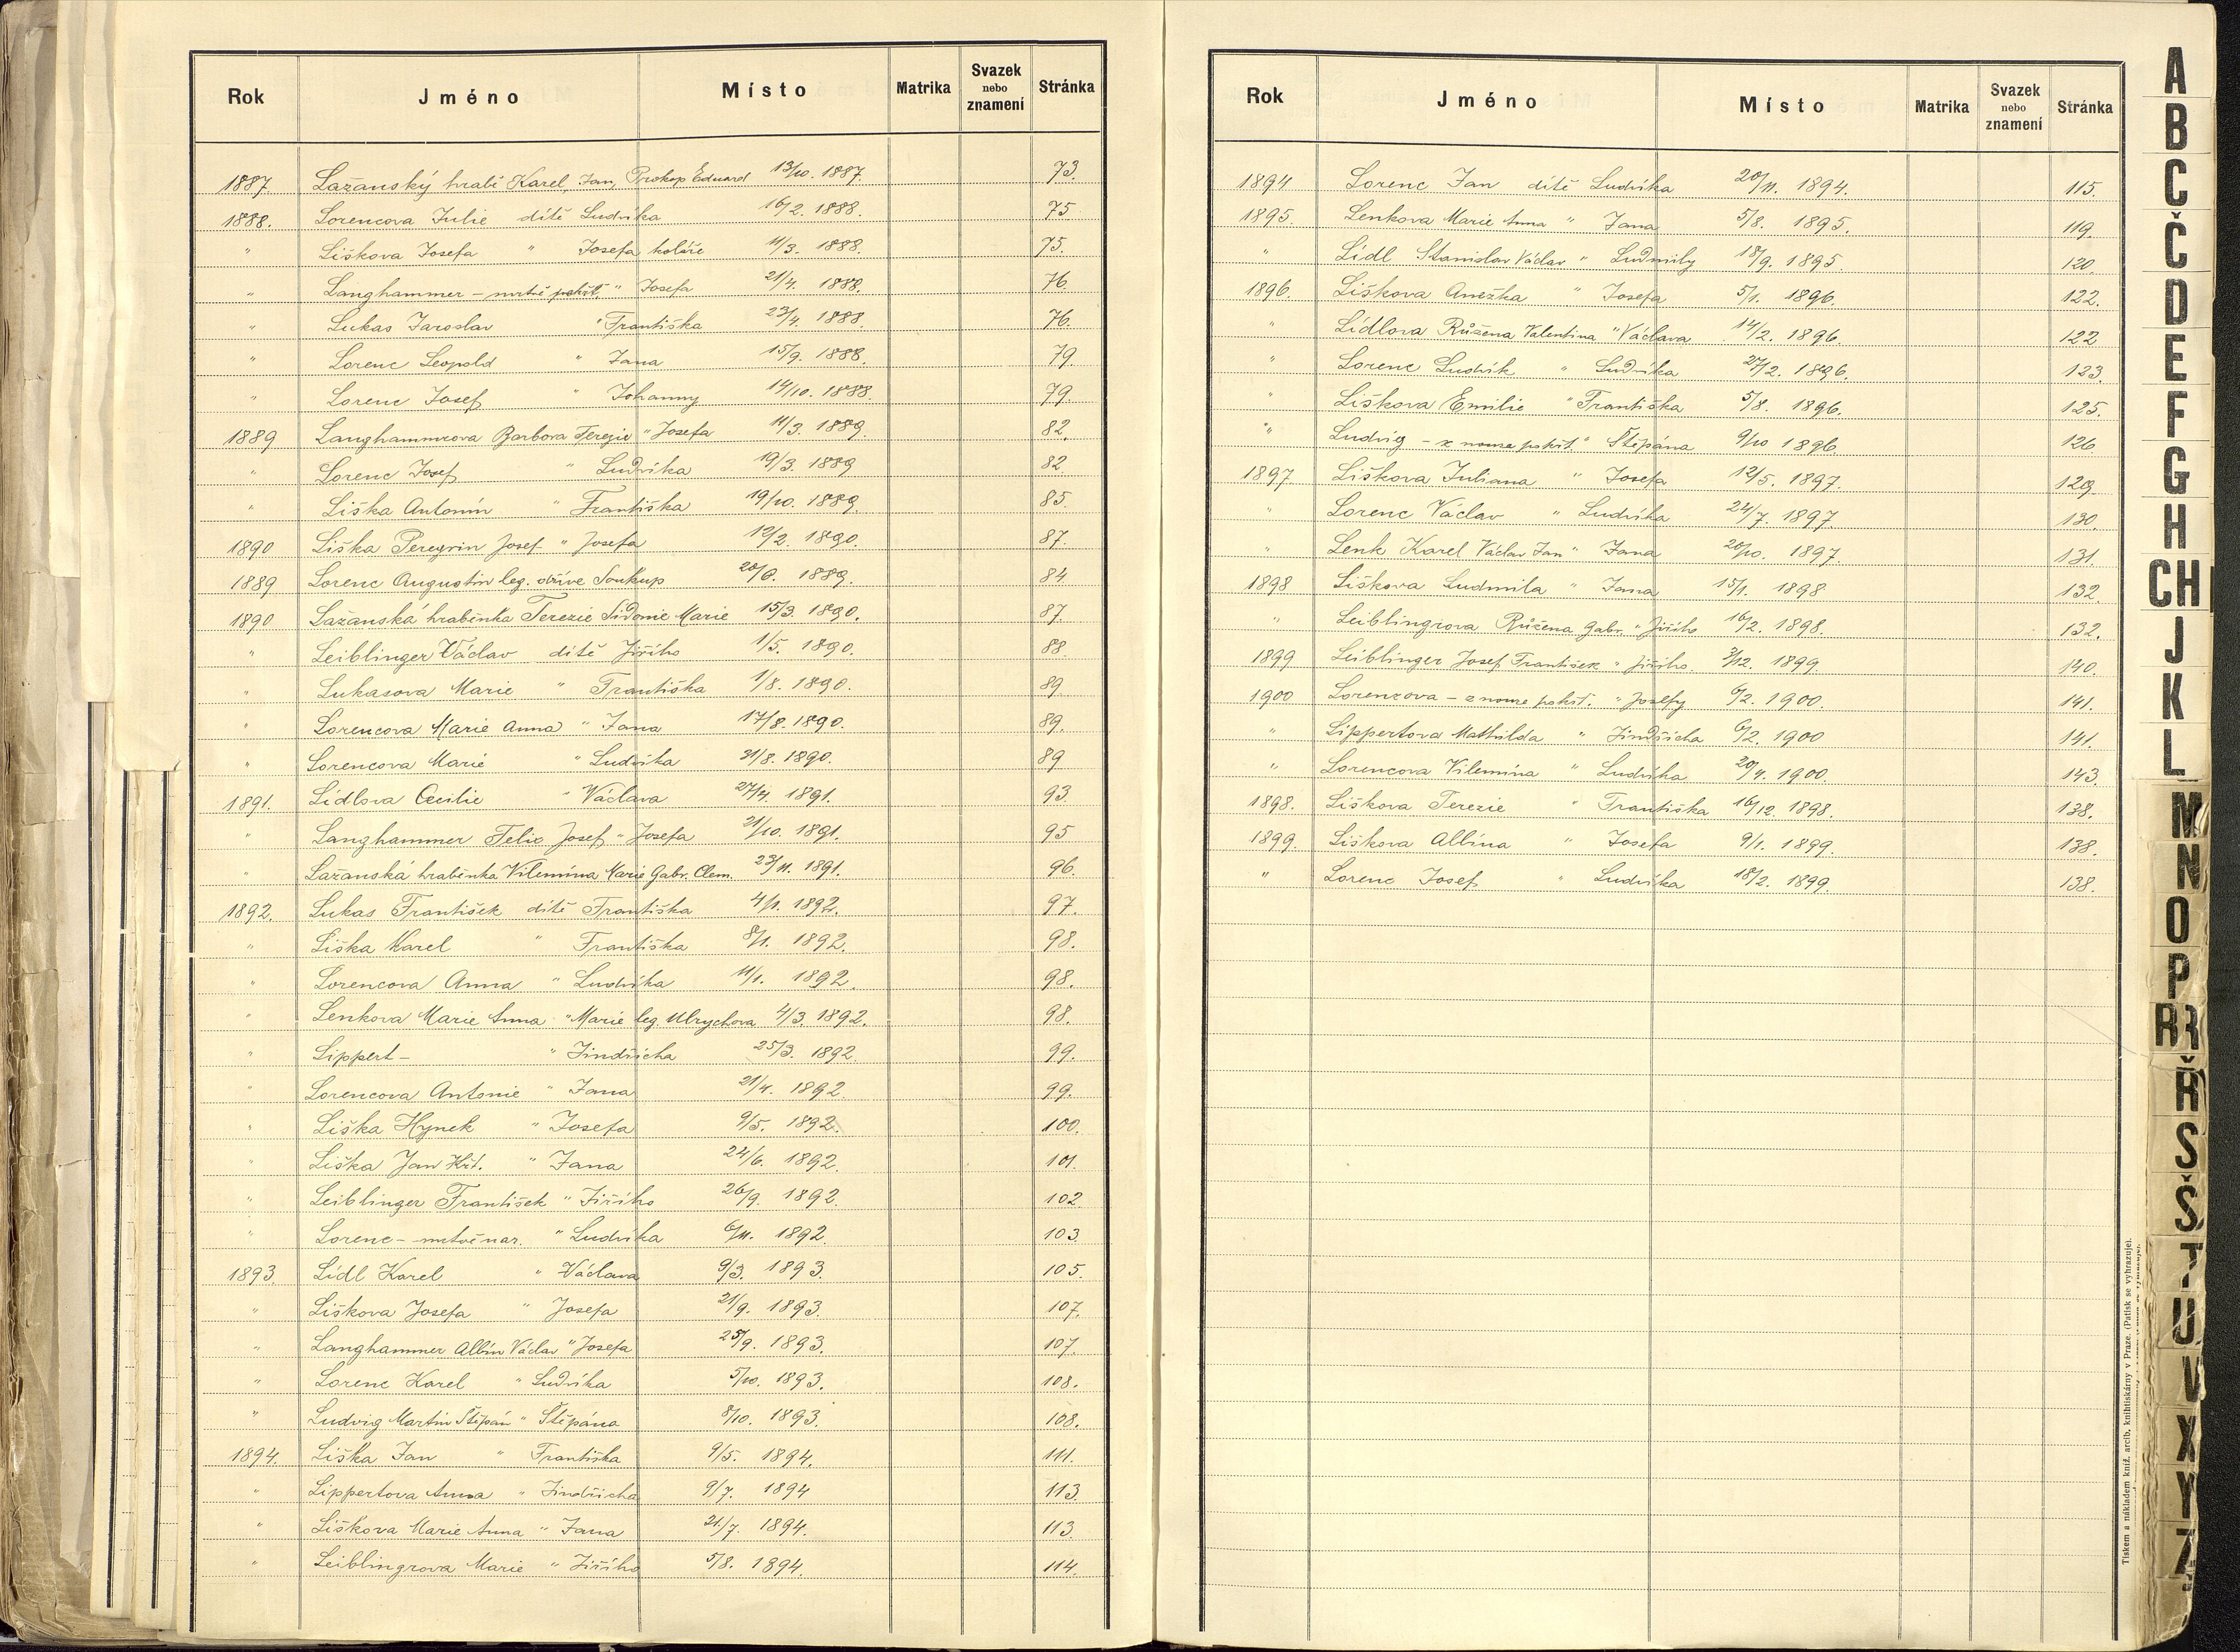 Rok Jméno Místo Matrika Svazek nebo znamení Stránka
1887 Lažanský hrabě Karel, Jan, Prokop Eduard 13/10. 1887. 73.
1888. Lorencova Julie dítě Ludvíka 16/2. 1888. 75
" Liškova Josefa " Josefa koláře 11/3. 1888. 75.
" Langhammer - mrtvě pokřt. " Josefa 21/4. 1888. 76
" Lukas Jaroslav " Františka 23/4. 1888. 76.
" Lorenc Leopold " Jana 15/9. 1888. 79.
" Lorenc Josef " Johanny 14/10. 1888. 79
1889 Langhammrova Barbora Terezie " Josefa 11/3. 1889. 82.
" Lorenc Josef " Ludvíka 19/3. 1889 82
" Liška Antonín " Františka 19/10. 1889. 85.
1890 Liška Peregrin Josef " Josefa 12/2. 1890. 87.
1889 Lorenc Augustin leg. dříve Soukup 1889. 84
1890 Lažanská hraběnka Terezie Sidonie Marie 15/3. 1890. 87.
" Leiblinger Václav dítě Jiřího 1/5. 1890. 88.
" Lukasova Marie " Františka 1/8. 1890. 89
" Lorencova Marie Anna " Jana 17/8. 1890. 89.
" Lorencova Marie " Ludvíka 31/8. 1890. 89
1891. Lídlova Cecilie " Václava 27/4. 1891. 93
" Langhammer Felix Josef " Josefa 21/10. 1891. 95
" Lažanská hraběnka Vilemína Marie Gabr. Clem. 23/11. 1891. 96.
1892. Lukas František dítě Františka 4/1. 1892. 97.
" Liška Karel " Františka 8/1. 1892. 98.
" Lorencova Anna " Ludvíka 11/1. 1892. 98.
" Lenkova Marie Anna " Marie leg. Ulrychova 4/3. 1892. 98.
" Lippert - " Jindřicha 25/3. 1892. 99.
" Lorencova Antonie " Jana 21/4. 1892 99.
" Liška Hynek " Josefa 9/5. 1892. 100.
" Liška Jan Křt. " Jana 24/6. 1892. 101.
" Leiblinger František " Jiřího 26/9. 1892. 102
" Lorenc - mrtvě nar. " Ludvíka 6/11. 1892. 103
1893. Lídl Karel " Václava 9/3. 1893. 105.
" Liškova Josefa " Josefa 21/9. 1893. 107.
" Langhammer Albín Václav " Josefa 25/9. 1893. 107.
" Lorenc Karel " Ludvíka 5/10. 1893. 108.
" Ludvig Martin Štěpán " Štěpána 8/10. 1893. 108.
1894. Liška Jan " Františka 9/5. 1894. 111.
" Lippertova Anna " Jindřicha 9/7. 1894 113
" Liškova Marie Anna " Jana 21/7. 1894. 113.
" Leiblingrova Marie " Jiřího 5/8. 1894. 114.
Rok Jméno Místo Matrika Svazek nebo znamení Stránka
1894 Lorenc Jan dítě Ludvíka 20/11. 1894. 115.
1895. Lenkova Marie Anna " Jana 5/8. 1895. 119.
" Lídl Stanislav Václav " Ludmily 18/9. 1895. 120.
1896. Liškova Anežka " Josefa 5/1. 1896. 122.
" Lídlova Růžena Valentina " Václava 14/2. 1896. 122
" Lorenc Ludvík " Ludvíka 27/2. 1896. 123.
" Liškova Emilie " Františka 5/8. 1896. 125.
" Ludvig - z nouze pokřt. " Štěpána 9/10 1896. 126
1897 Liškova Juliana " Josefa 12/5. 1897. 129.
" Lorenc Václav " Ludvíka 24/7. 1897 130.
" Lenk Karel Václav Jan " Jana 20/10. 1897. 131.
1898 Liškova Ludmila " Jana 15/1. 1898 132.
" Leiblingrova Růžena Gabr. " Jiřího 16/2. 1898. 132.
1899 Leiblinger Josef František " Jiřího. 3/12. 1899. 140.
1900 Lorencova - z nouze pokřt. " Josefy 6/2. 1900. 141.
" Lippertova Mathilda " Jindřicha 6/2. 1900 141.
" Lorencova Vilemína " Ludvíka 20/4. 1900. 143
1898. Liškova Terezie " Františka 16/12. 1898. 138.
1899. Liškova Albína " Josefa 9/1. 1899. 138.
" Lorenc Josef " Ludvíka 18/2. 1899 138.
Tiskem a nákladem kníž. arcib. knihtiskárny v Praze. (Patisk se vyhrazuje).
A
B
C
Č
D
E
F
G
H
CH
J
K
L
M
N
O
P
R
Ř
S
Š
T
U
V
X
Y
Z